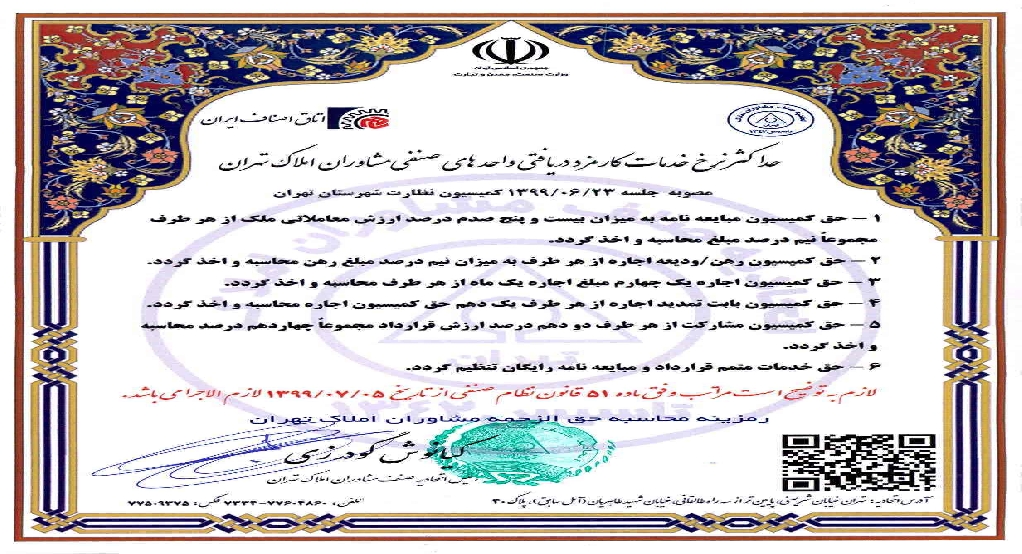 جمهوری اسلامی ایران
وزارت صنعت، معدن و تجارت
اتاق اصناف ایران
حداکثر نرخ خدمات کارمزد دریافتی واحدهای صنفی مشاوران املاک تهران
مصوبه جلسه ۱۳۹۹/۰۶/۲۳ کمیسیون نظارت شهرستان تهران
۱ – حق کمیسیون مبایعه نامه به میزان بیست و پنج صدم درصد ارزش معاملاتی ملک از هر طرف
مجموعاً نیم درصد مبلغ محاسبه و اخذ گردد.
۲ – حق کمیسیون رهن/ودیعه اجاره از هر طرف به میزان نیم درصد مبلغ رهن محاسبه و اخذ گردد.
۳ – حق کمیسیون اجاره یک چهارم مبلغ اجاره یک ماه از هر طرف محاسبه و اخذ گردد.
۴ – حق کمیسیون بابت تمدید اجاره از هر طرف یک دهم حق کمیسیون اجاره محاسبه و اخذ گردد.
۵ – حق کمیسیون مشارکت از هر طرف دو دهم درصد ارزش قرارداد مجموعاً چهاردهم درصد محاسبه
و اخذ گردد.
۶ – حق خدمات متمم قرارداد و مبایعه نامه رایگان تنظیم گردد.
لازم به توضیح است مراتب وفق ماده ۵۱ قانون نظام صنفی از تاریخ ۱۳۹۹/۰۷/۰۵ لازم الاجرا می باشد.
رمزینه محاسبه حق الزحمه مشاوران املاک تهران
کیانوش گودرزی
رئیس اتحادیه صنف مشاوران املاک تهران
آدرس اتحادیه: تهران خیابان شریعتی، پایین تر از سه راه طالقانی، خیابان شهید طاهریان (آمل سابق)، پلاک ۳۰
تلفن: ۷۷۶۰۴۸۶۰-۷۲۳۴ فکس: ۷۷۵۰۹۳۷۵